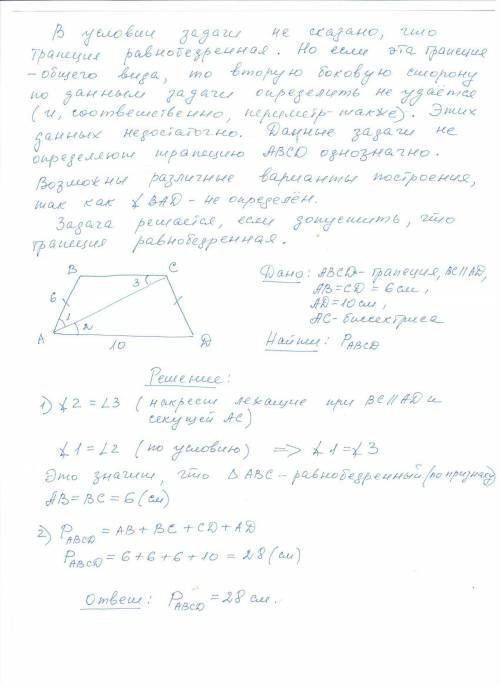 В условии задачи не сказано, что
трапеция равнобедренная. Но если эта трапеция
- общего вида, то вторую боковую сторону
по данным задачи определить не удаётся
(и, соответственно, периметр - также). Этих
данных недостаточно. Данные задачи не
определяют трапецию ABCD однозначно.
Возможны различные варианты построения,
так как ∡ BAD - не определён.
Задача решается, если допустить, что
трапеция равнобедренная.
B C
3
6
1
2
A D
10
Дано: ABCD - трапеция, BC∥AD,
AB=CD = 6 см,
AD=10 см,
AC - биссектриса
Найти: P_ABCD
Решение:
1) ∡2 = ∠3 (накрест лежащие при BC∥AD и
секущей AC)
∡1 = ∠2 (по условию) => ∡1 = ∡3
Это значит, что △ ABC - равнобедренный (по признаку)
AB = BC = 6 (см)
2) P_ABCD = AB + BC + CD + AD
P_ABCD = 6 + 6 + 6 + 10 = 28 (см)
Ответ: P_ABCD = 28 см.